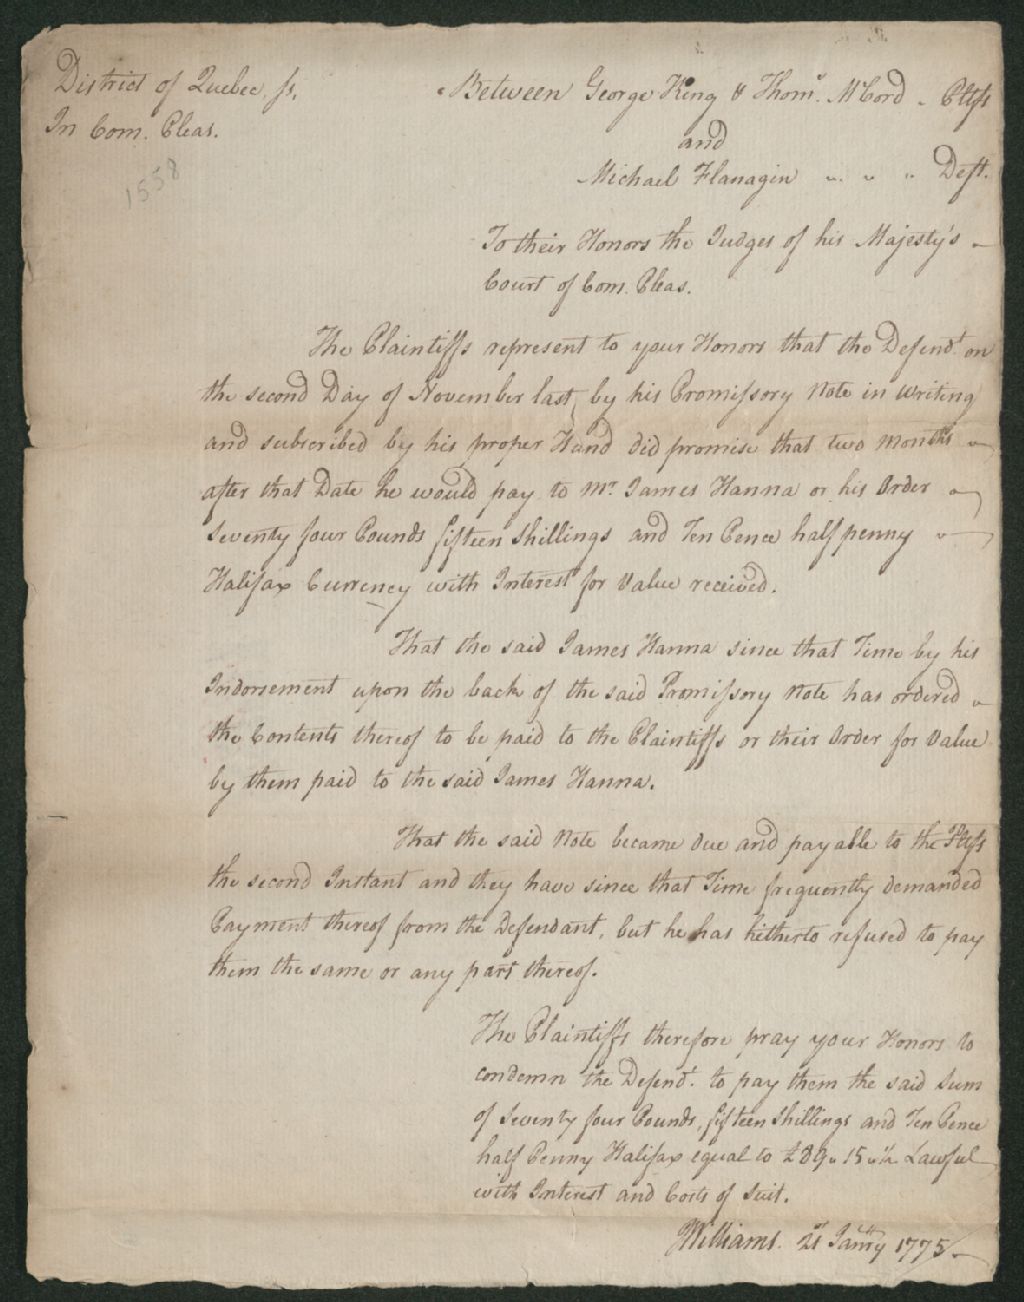 District of Quebec, ſs.
In Com. Pleas.
1558
Between George King & Thomˢ. McCord - Pltffs
and
Michael Flanagin " " " Deft.
To their Honors the Judges of his Majesty's
Court of Com. Pleas.
The Plaintiffs represent to your Honors that the Defendᵗ. on
the second Day of November last, by his Promiſsory Note in writing
and subscribed by his proper Hand did promise that two Months
after that Date he would pay to Mr. James Hanna or his Order
Seventy four Pounds fifteen Shillings and Ten Pence half penny
Halifax Currency with Interest for Value received.
That the said James Hanna since that Time by his
Indorsement upon the back of the said Promiſsory Note has ordered
the Contents thereof to be paid to the Plaintiffs or their Order for Value
by them paid to the said James Hanna.
That the said Note became due and payable to the Pltffs
the second Instant and they have since that Time frequently demanded
Payment thereof from the Defendant, but he has hitherto refused to pay
them the same or any part thereof.
The Plaintiffs therefore pray your Honors to
condemn the Defendᵗ. to pay them the said Sum
of Seventy four Pounds, fifteen Shillings and Ten Pence
half Penny Halifax equal to £89 " 15 " Lawful
with Interest and Costs of Suit.
JWilliams. 21ˢᵗ Janʳʸ 1775